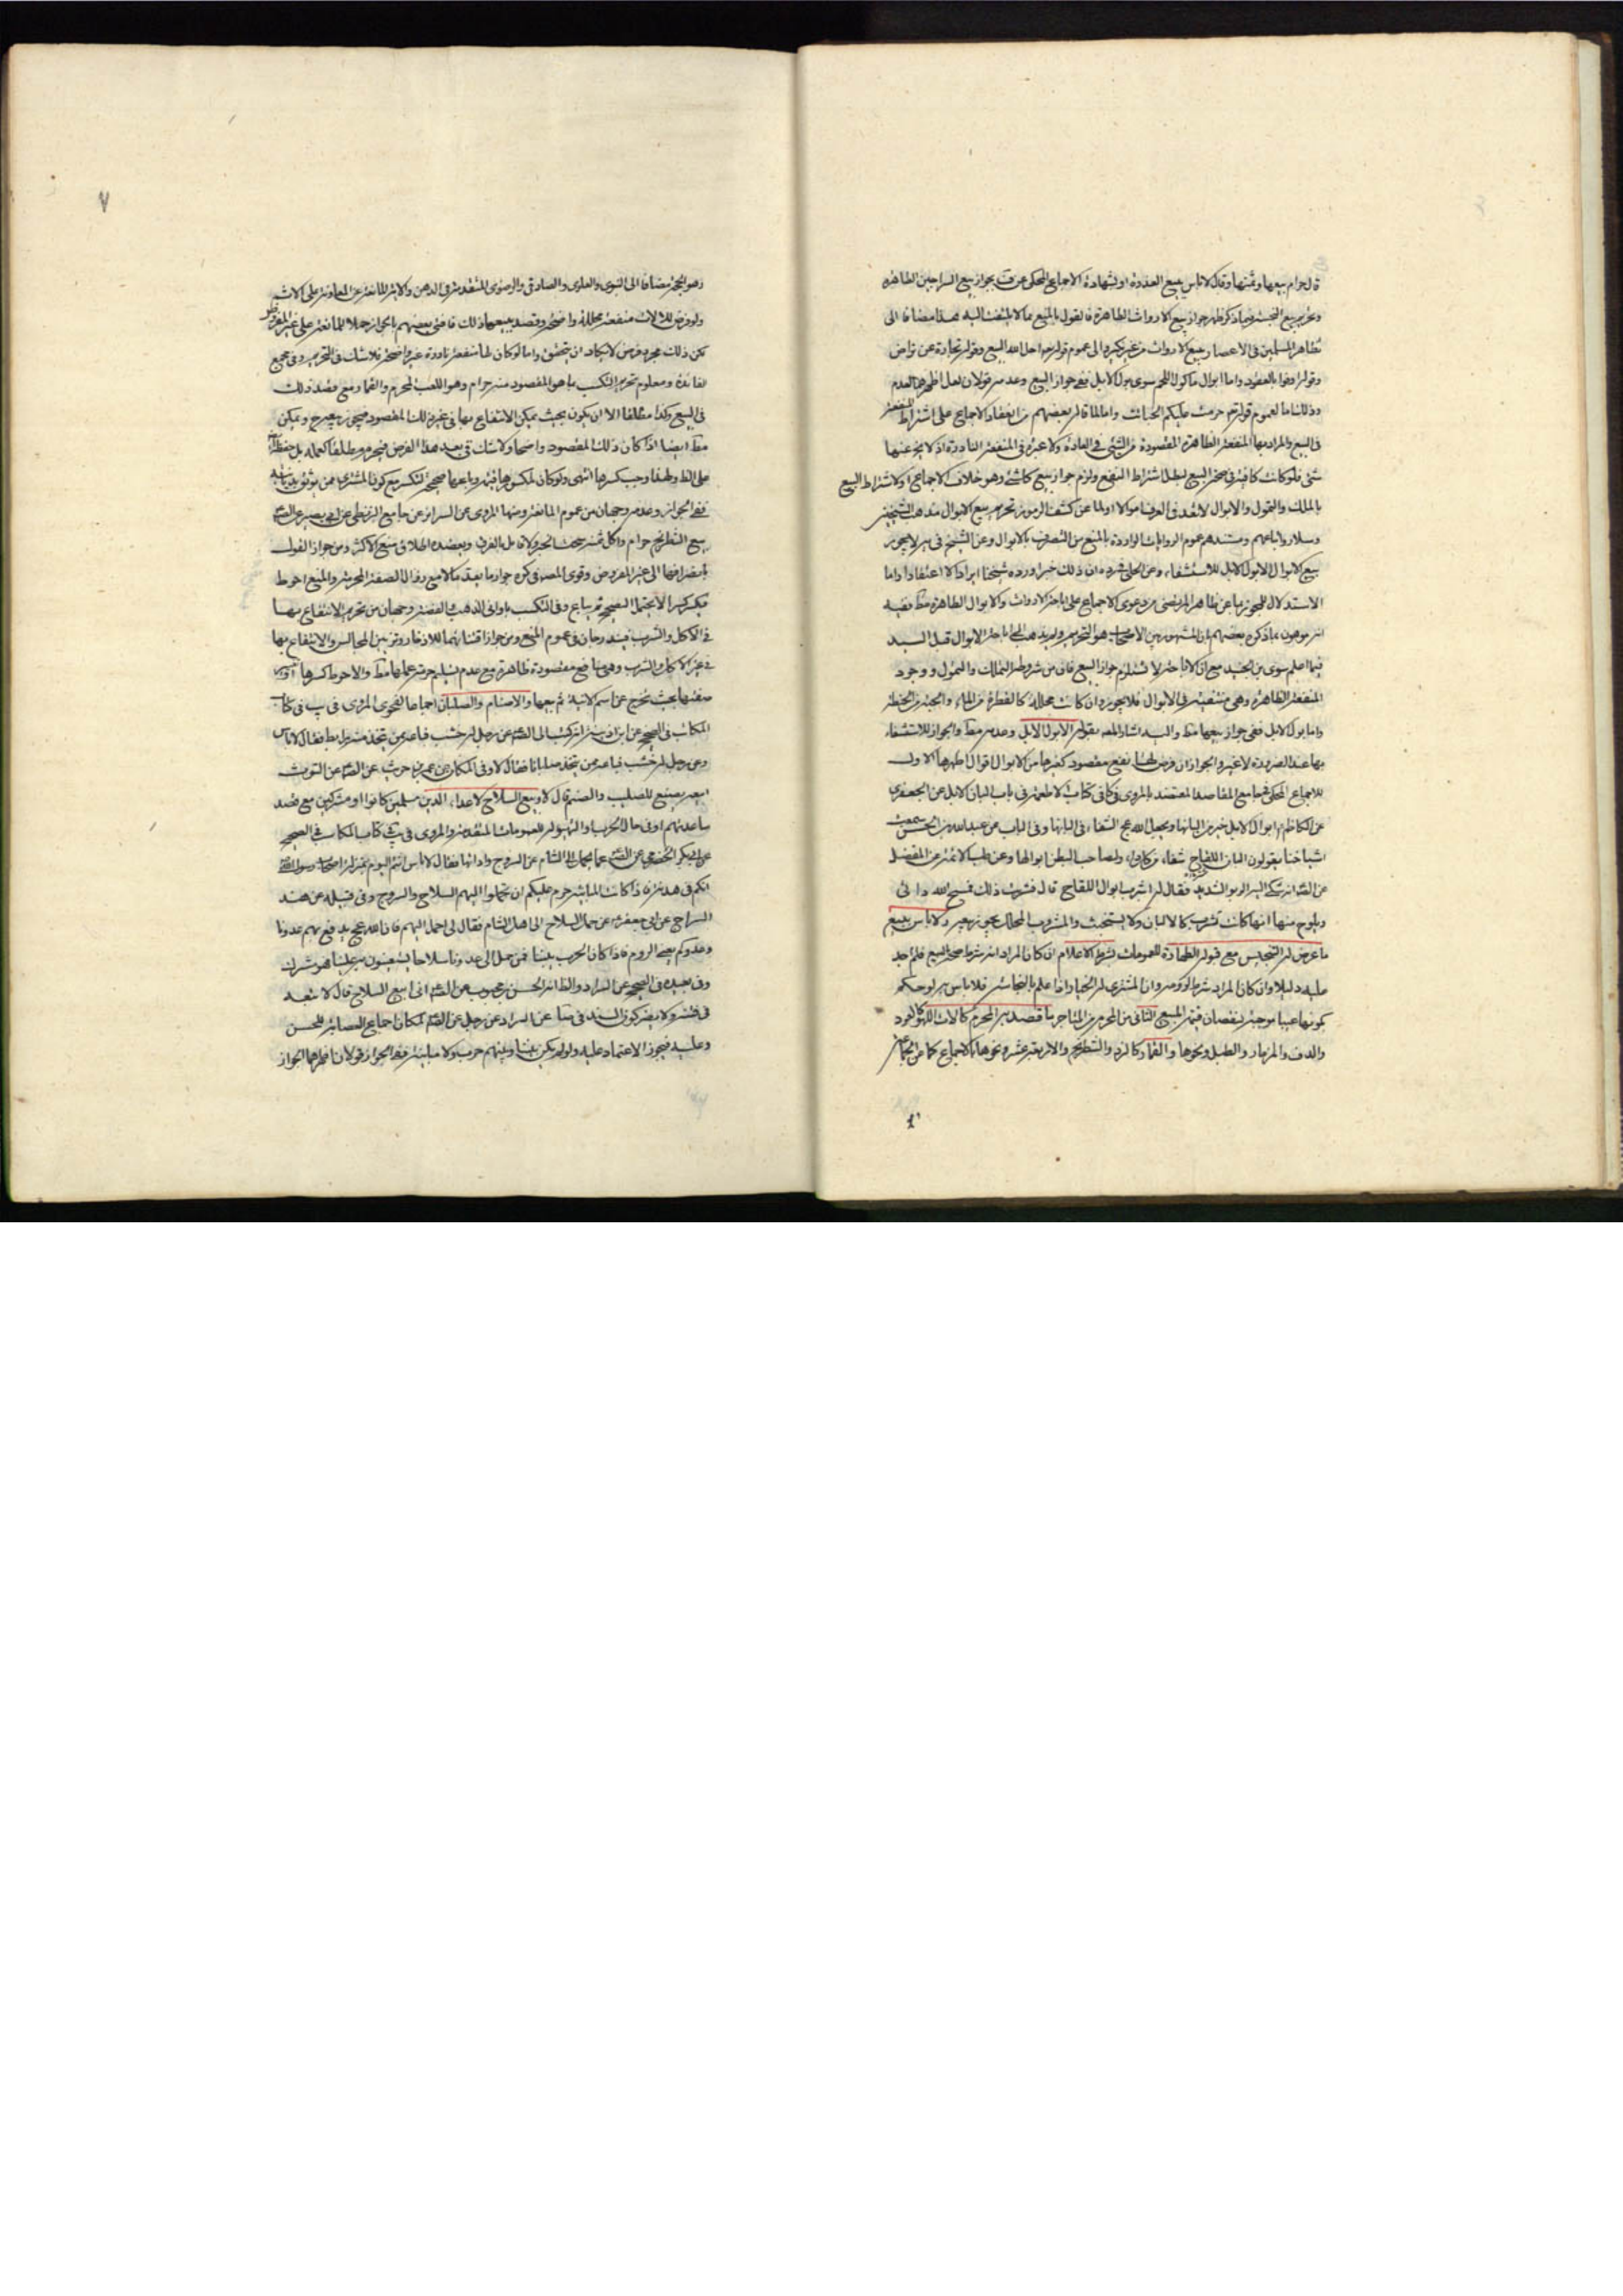 قال حرام بيعها وثمنها وقال لا باس ببيع العذرة او لشهادة الاجماع المحكى عن ف بجواز بيع السراجين الطاهرة
وتحريم بيع النجسة وبما ذكر ظهر جواز بيع الارواث الطاهرة فالقول بالمنع مما لا يلتفت اليه هذا مضافا الى
تظاهر المسلمين فى الاعصار ببيع الارواث من غير نكير والى عموم قوله تم احل الله البيع وقوله تجارة عن تراض
وقوله اوفوا بالعقود واما ابوال ماكول اللحم سوى بول الابل ففى جواز البيع وعدمه قولان لعل اظهرهما العدم
وذلك اما لعموم قوله تم حرمت عليكم الخبائث واما لما قاله بعضهم من انعقاد الاجماع على اشتراط المنفعة
فى البيع والمراد بها المنفعة الظاهرة المقصودة من الشئ فى العادة ولا عبرة فى المنفعة النادرة اذ لا يخ عنها
شئ فلو كانت كافية فى صحة البيع لبطل اشتراط النفع ولزم جواز بيع كل شئ وهو خلاف الاجماع او لاشتراط البيع
بالملك والتمول والابوال لا تعد فى العرف اموالا او لما عن كشف الرموز تحريم بيع الابوال مذهب الشيخين
وسلار واتباعهم ومستندهم عموم الروايات الواردة بالمنع من التصرف بالابوال وعن الشيخ فى يه لا يجوز
بيع الابوال الا بول الابل للاستشفاء وعن الحلى فرده ان ذلك خبر اورده شيخنا ايرادا لا اعتقادا واما
الاستدلال للمجوزين بما عن ظاهر المرتضى من دعوى الاجماع على اباحة الارواث والابوال الطاهرة مط ففيه
انه موهون بما ذكره بعضهم ان المشهور بين الاصحاب هو التحريم ولم يذهب الى اباحة الابوال قبل السيد
فيما اعلم سوى بن الجنيد مع ان الاباحة لا تستلزم جواز البيع فان من شروطه التملك والتمول ووجود
المنفعة الظاهرة وهى منتفية فى الابوال فلا يجوز وان كانت محللة كالقطرة من الماء والحبة من الحنطة
واما بول الابل ففى جواز بيعها مط واليه اشار المص بقوله الا بول الابل وعدمه مط والجواز للاستشفاء
بها عند الضرورة لا غير والجواز ان فرض لها نفع مقصود كغيرها من الابوال اقوال اظهرها الاول
للاجماع المحكى فى جامع المقاصد المعتضد بالمروى فى كافى كتاب الاطعمة فى باب البان الابل عن الجعفرى
عن الكاظم ع ابوال الابل خير من البانها ويجعل الله عج الشفاء فى البانها وفى الباب عن عبد الله بن الحسن سمعت
اشياخنا يقولون البان اللقاح شفاء من كل داء ولصاحب البطن ابوالها وعن طب الائمة عن المفضل
عن الص انه شكى اليه الربو الشديد فقال له اشرب ابوال اللقاح قال فشربت ذلك فمسح الله دائى
ويلوح منها انها كانت تشرب كالالبان ولا يستخبث والمشروب المحلل يجوز بيعه ولا باس ببيع
ما عرض له التنجيس مع قبوله الطهارة للعمومات بشرط الاعلام ان كان المراد انه شرط صحة البيع فلم اجد
عليه دليلا وان كان المراد شرط لزومه وان المشترى له الخيار اذا علم بالنجاسة فلا باس به لو حكم
بكونها عيبا موجبة لنقصان قيمة المبيع الثانى من المحرم من المتاجر ما قصد به المحرم كالات اللهو كالعود
والدف والمزمار والطبل ونحوها والقمار كالنرد والشطرنج والاربعة عشر ونحوها بالاجماع كما عن الجماعة
وهو الحجة مضافا الى النبوى والعلوى والصادقى والرضوى المتقدمة فى الدهن والاية المانعة عن المعاونة على الاثم
ولو فرض للالات منفعة محللة واضحة وقصد ببيعها ذلك فافتى بعضهم بالجواز حملا للمانعة على غير المفروض
لكن ذلك مجرد فرض لا يكاد ان يتحقق واما لو كان لها منفعة نادرة غير واضحة فلا شك فى التحريم وفى مجمع
الفائدة ومعلوم تحريم التكسب بما هو المقصود منه حرام وهو اللعب المحرم والقمار ومع قصد ذلك
فى البيع وكذا مطلقا الا ان يكون بحيث يمكن الانتفاع بها فى غير ذلك المقصود فيجوز بيعه ح ويمكن
مط ايضا اذا كان ذلك المقصود واضحا ولا شك فى بعد هذا الفرض فيحرم مطلقا كعمله بل حفظه
على الظ ولهذا وجب كسرها انتهى ولو كان لمكسورها قيمة وباعها صحيحة لتكسر مع كون المشترى ممن يوثق بديانته
ففى الجواز وعدمه وجهان من عموم المانعة ومنها المروى عن السرائر عن جامع البزنطى عن ابى بصير عن الص
بيع الشطرنج حرام واكل ثمنه سحت الخبر ولا قائل بالفرق ويعضده اطلاق منع الاكثر ومن جواز القول
بانصرافها الى غير المفروض وقوى المص فى كره جواز ما يعد مالا مع زوال الصفة المحرمة والمنع احوط
فيكسر كسرا لا يحتمل التصحيح ثم يباع وفى التكسب باوانى الذهب والفضة وجهان من تحريم الانتفاع بها
فى الاكل والشرب فيندرجان فى عموم المنع ومن جواز اقتنائهما للادخار وتزيين المجالس والانتفاع بها
فى غير الاكل والشرب وهى منافع مقصودة ظاهرة مع عدم تسليم حرمة عملها مط والاحوط كسرها
صفتها بحيث تخرج عن اسم الانية ثم بيعها والاصنام والصلبان اجماعا لفحوى المروى فى يب فى كتاب
المكاسب فى الصحيح عن ابن اذينة انه كتب الى الص عن رجل له خشب فباعه ممن يتخذ منه برابط فقال لا باس
وعن رجل له خشب فباعه ممن يتخذه صلبانا فقال لا وفى المكارى عن عمرو بن حريث عن الص عن التوت
ابيعه يصنع للصليب والصنم قال لا وبيع السلاح لاعداء الدين مسلمين كانوا او مشركين مع قصد
مساعدتهم او فى حال الحرب او التهيؤ له للعمومات المتقدمة والمروى فى يب كتاب المكاسب فى الصحيح
عن ابى بكر الحضرمى عن الص عما يحمل الى الشام عن السروج واداتها فقال لا باس انتم اليوم بمنزلة اصحاب رسول الله
انكم فى هدنة فاذا كانت المباينة حرم عليكم ان تحملوا اليهم السلاح والسروج وفى قبله عن هند
السراج عن ابى جعفر ع عن حمل السلاح الى اهل الشام فقال لى احمل اليهم فان الله عج يدفع بهم عدونا
وعدوكم يعنى الروم فاذا كان الحرب بيننا فمن حمل الى عدونا سلاحا يستعينون به علينا فهو مشرك
وفى بعيده فى الصحيح عن السراد والظ انه الحسن بن محبوب عن الص انى ابيع السلاح قال لا تبعه
فى فتنة ولا يضر كون السند فى عن السراد عن رجل عن الص لمكان اجماع العصابة للحسن
وعليه فيجوز الاعتماد عليه ولو لم يكن بيننا وبينهم حرب ولا مباينة ففى الجواز قولان اظهرهما الجواز
٧